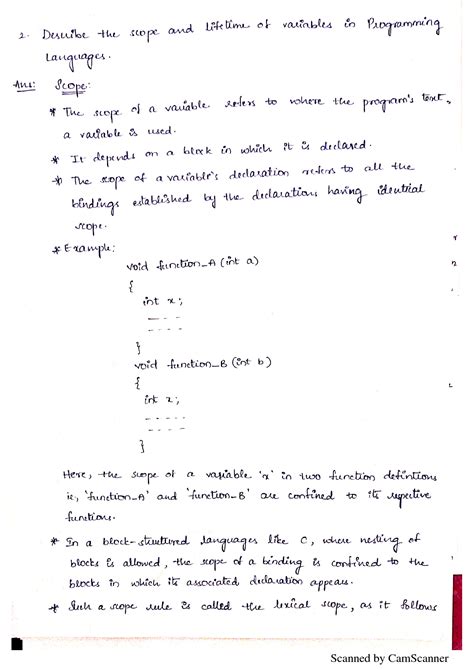 2. Describe the scope and lifetime of variables in Programming
Languages.
Ans: Scope:
* The scope of a variable refers to where the program's text,
a variable is used.
* It depends on a block in which it is declared.
* The scope of a variable's declaration refers to all the
bindings established by the declarations having identical
scope.
* Example:
void function_A (int a)
{
int x;
- - - -
- - - -
}
void function_B (int b)
{
int x;
- - - - -
- - - - -
}
Here, the scope of a variable 'x' in two function defintions
ie, 'function_A' and 'function_B' are confined to its repective
functions.
* In a block-structured languages like C, where nesting of
blocks is allowed, the scope of a binding is confined to the
blocks in which its associated declaration appears.
* Such a scope rule is called the lexical scope, as it follows
Scanned by CamScanner